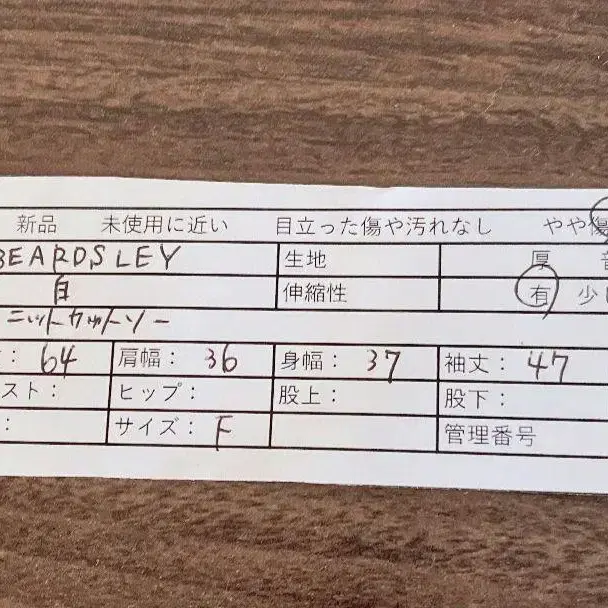 新品 未使用に近い 目立った傷や汚れなし やや傷
BEARDSLEY 生地 厚 普
白 伸縮性 有 少し
ニットカットソー
: 64 肩幅: 36 身幅: 37 袖丈: 47
スト: ヒップ: 股上: 股下:
: サイズ: F 管理番号